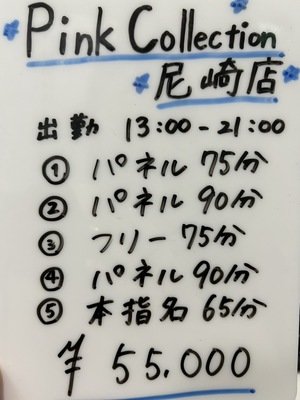 Pink Collection
尼崎店
出勤 13:00-21:00
① パネル 75分
② パネル 90分
③ フリー 75分
④ パネル 90分
⑤ 本指名 65分
¥ 55.000